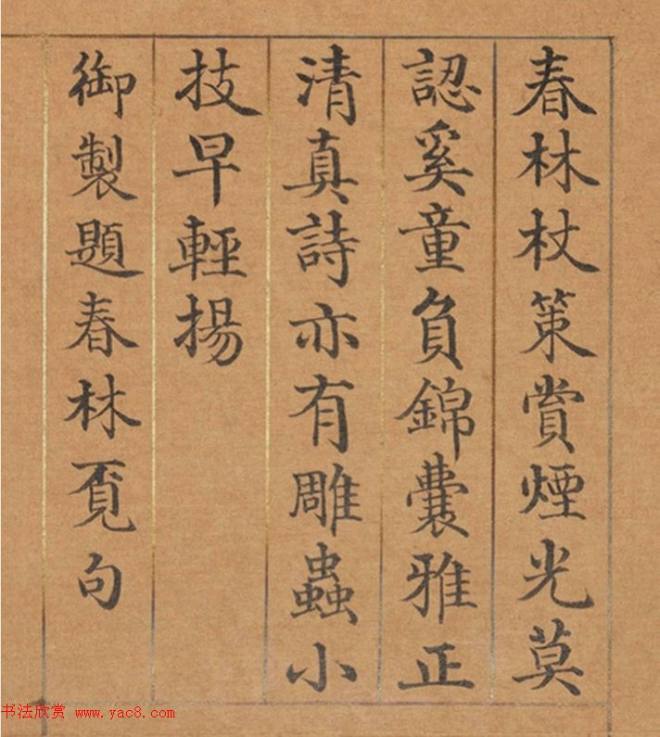 春林杖策賞煙光莫
認奚童負錦囊雅正
清真詩亦有雕蟲小
技早輕揚
御製題春林覔句
书法欣赏 www.yac8.com